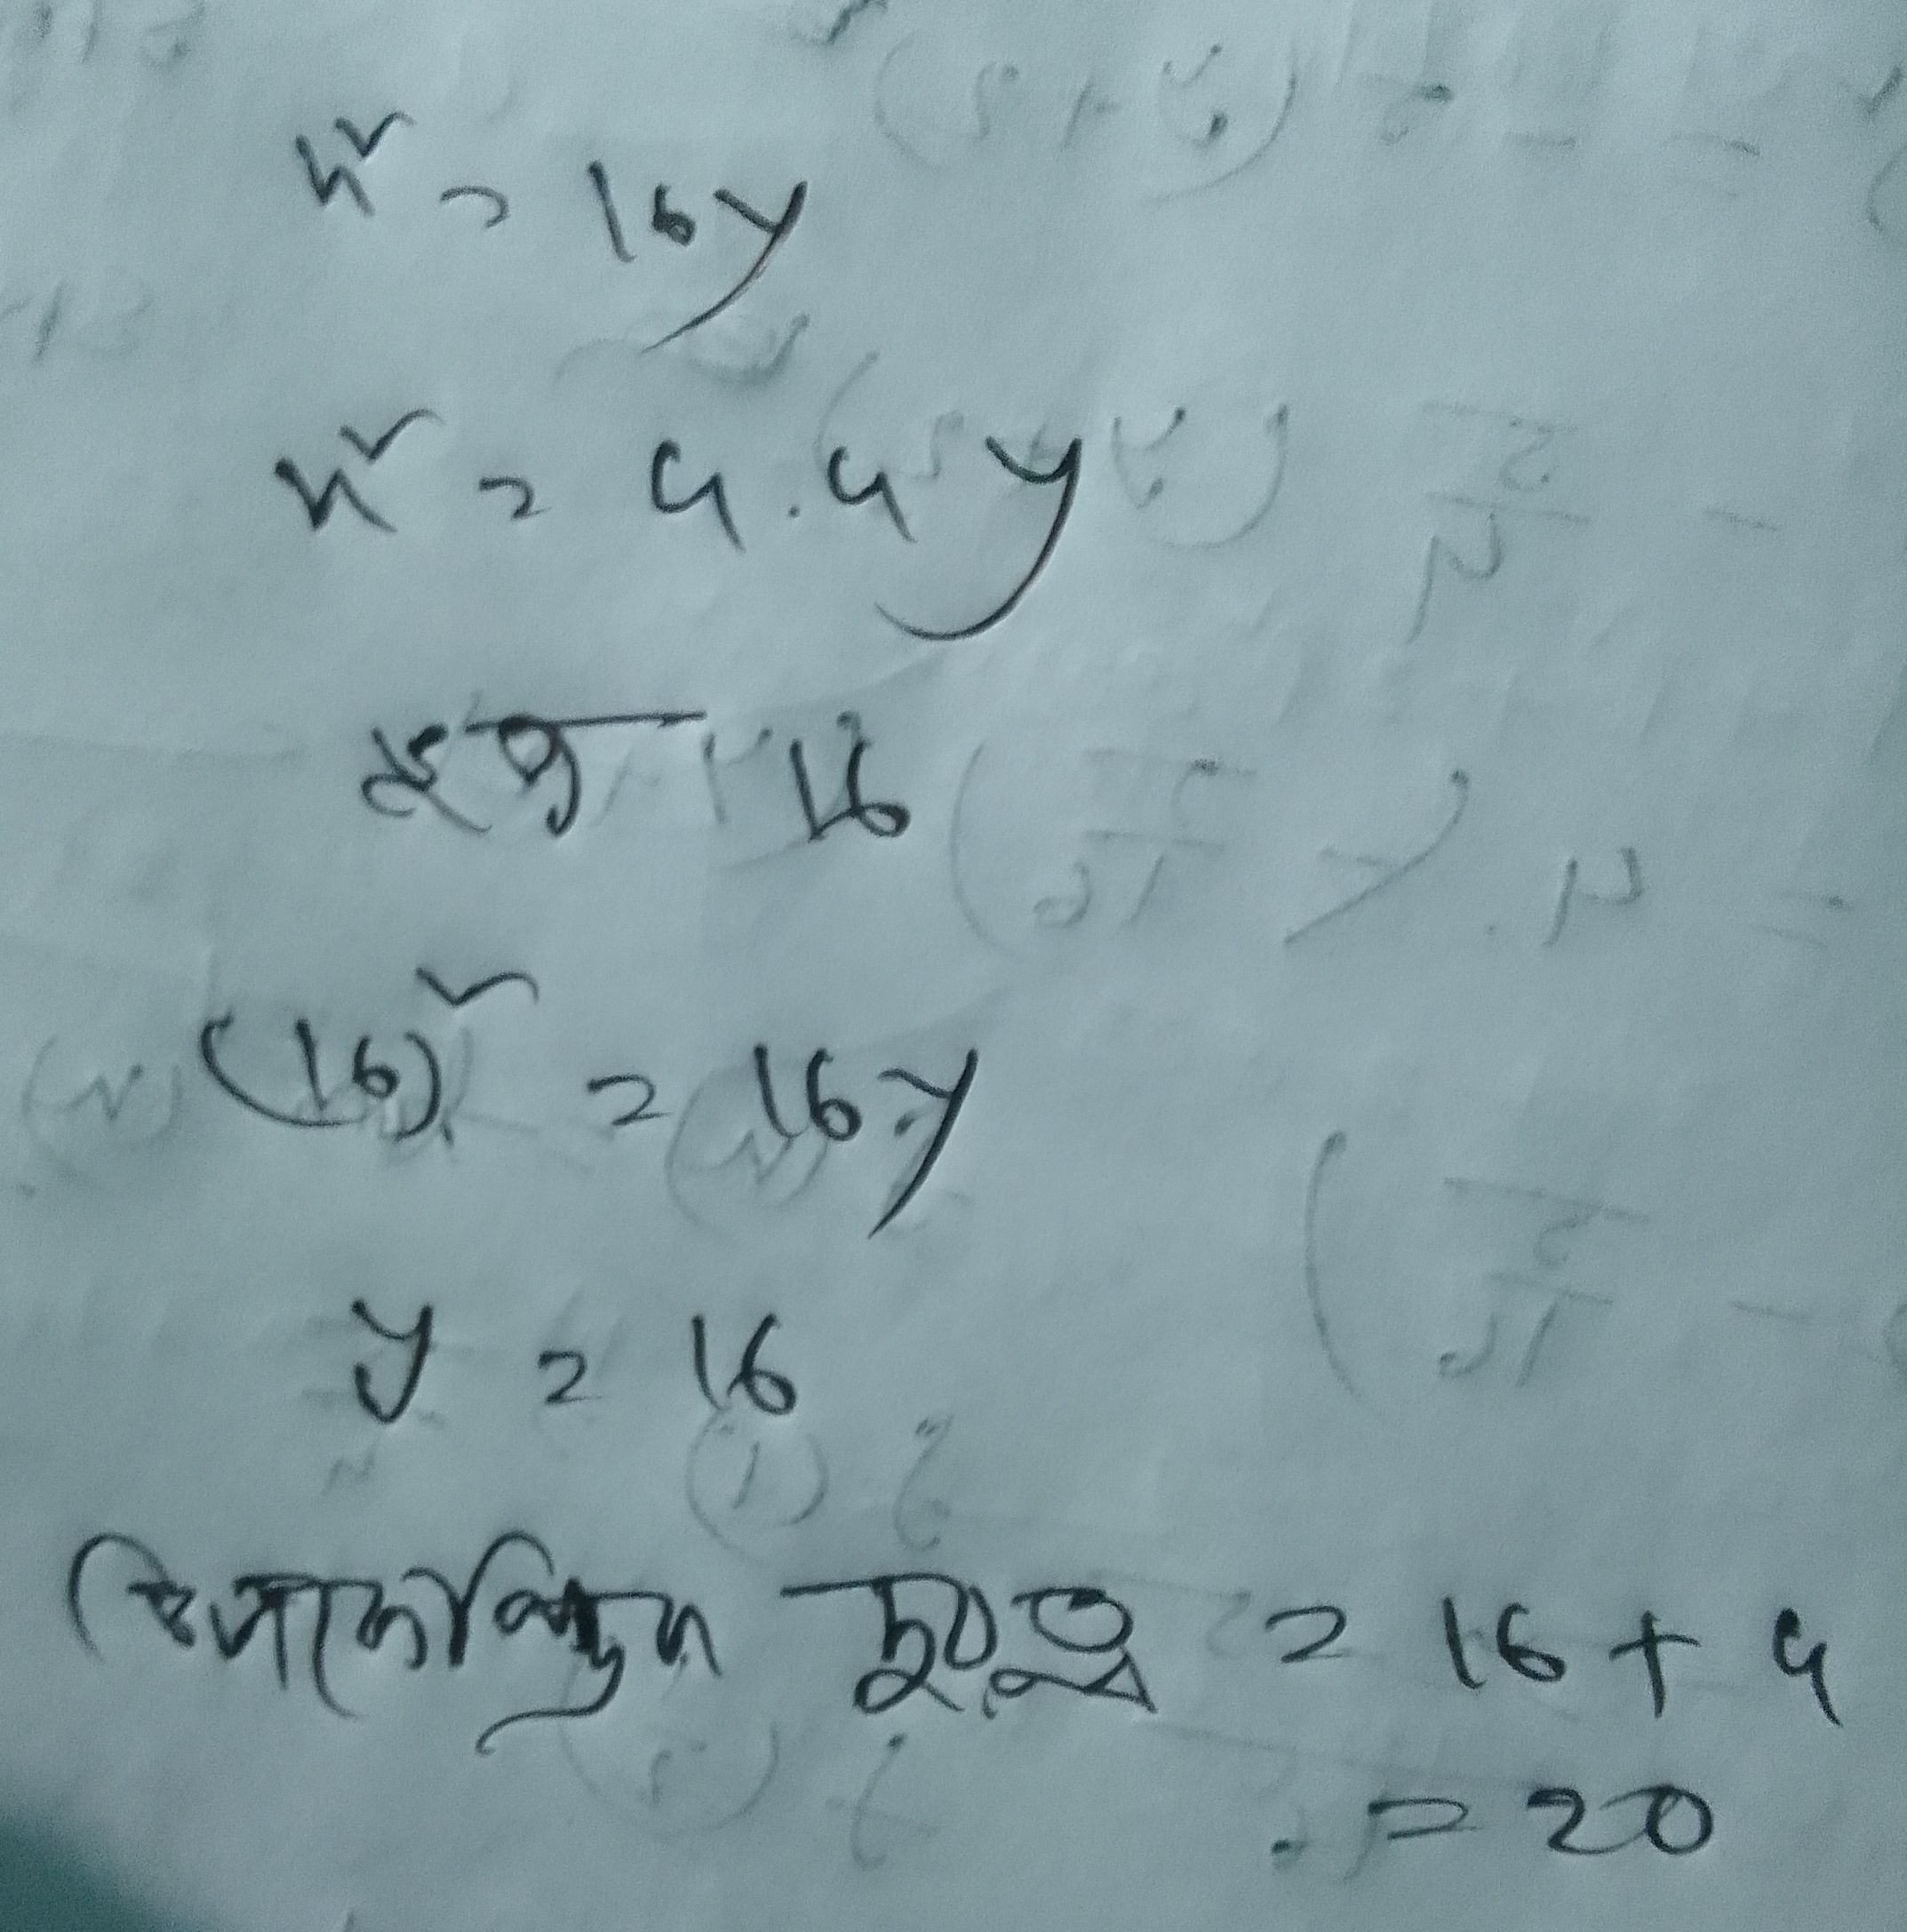 x² = 16y
x² = 4.4y
ভুজ 16
(16)² = 16y
y = 16
উপকেন্দ্রিক দূরত্ব = 16 + 4
= 20